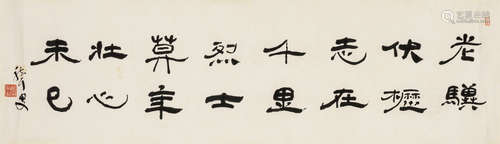 老驥
伏櫪
志在
千里
烈士
莫年
壯心
未已